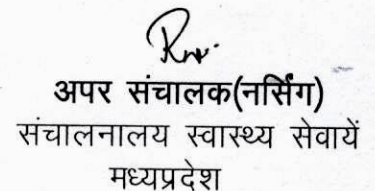 अपर संचालक(नर्सिंग)
संचालनालय स्वास्थ्य सेवायें
मध्यप्रदेश